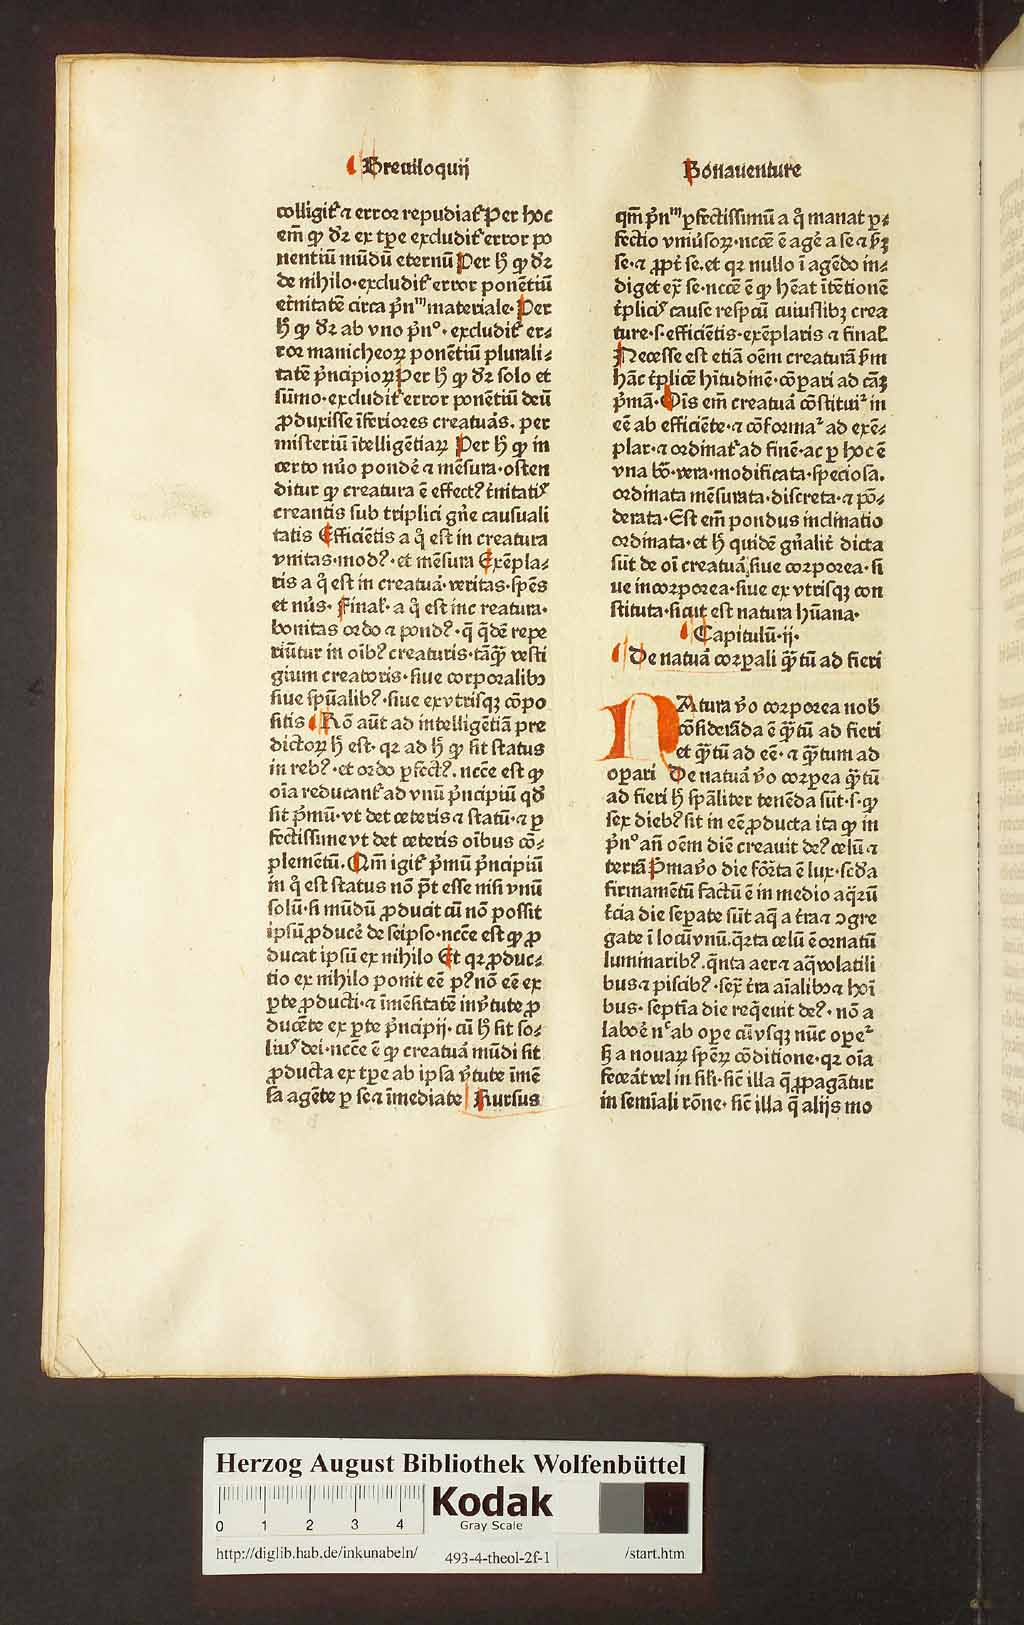 Breuiloquij
colligitᷣ ⁊ error repudiatᷣ Per hoc
em̄ ꝙ dr̄ ex tꝑe excluditᷣ error po
nentiū mūdū eternū Per hͦ ꝙ dr̄
de nihilo·excluditᷣ error ponētiū
et̓nitatē circa pͥn̄ᵐ materiale·Per
hͦ ꝙ dr̄ ab vno pͥnº·excluditᷣ er⸗
ror manicheoꝝ ponētiū plurali⸗
tatē pͥncipioꝝ Per hͦ ꝙ dr̄ solo et
sūmo·excluditᷣ error ponētiū deū
ꝓduxisse īferiores creatuᷓs. per
misteriū ītelligētiaꝝ Per hͦ ꝙ in
certo nūo ponde̓ ⁊ mēsura·osten
ditur ꝙ creatura ē effectꝰ t̓nitatis
creantis sub triplici gn̄e causuali
tatis Efficiētis a qͦ est in creatura
vnitas·modꝰ·et mēsura Exēpla⸗
ris a qͦ est in creatuᷓ·veritas·spēs
et nūs· Finał·a qͦ est inc reatura·
bonitas ordo ⁊ pondꝰ·q̄ qͥdē repe
riūtur in oībꝰ creaturis·tāꝙᷓ vesti
gium creatoris·siue corporalibꝫ
siue spūalibꝰ·siue ex vtrisqꝫ cōpo
sitis Rō aūt ad intelligētiā pre
dictoꝝ hͦ est·qꝛ ad hͦ ꝙ sit status
in rebꝰ·et ordo ꝑfectꝰ.nccē est ꝙ
oīa reducantᷣ ad vnū pͥncipiū qd̄
sit pͥmū·vt det ceteris ⁊ statū·⁊ ꝑ
fectissime vt det ceteris oībus cō⸗
plementū.Qm̄ igitᷣ pͥmū pͥncipiū
in qͦ est status nō pōt esse nisi vnū
solū·si mūdū ꝓducit cū nō possit
ipsū ꝓduce̓ de seipso·nccē est ꝙ ꝓ
ducat ipsū ex nihilo Et qꝛ ꝓduc⸗
tio ex nihilo ponit eē pꝰ nō eē ex
ꝑte ꝓducti·⁊ īmēsitatē in v̓tute ꝓ
ducēte ex ꝑte pͥncipij·cū hͦ sit so⸗
liuˢ dei·nccē ē ꝙ creatuᷓ mūdi sit
ꝓducta ex tꝑe ab ipsa v̓tute īmē
sa agēte ꝑ se ⁊ īmediate Rursus
Bonauenture
qm̄ pͥn̄ᵐ ꝑfectissimū a qͦ manat ꝑ⸗
fectio vniūsoꝝ·nccē ē age̓ a se ⁊ ẜm
se·⁊ ꝓpt̓ se.et qꝛ nullo ī agēdo in⸗
diget ex̄ se·nccē ē ꝙ hēat ītētionē
t̓plicis cause respcū cuiuslibꝫ crea
ture·s·efficiētis·exēplaris ⁊ finał
Necesse est etiā oēm creaturā ẜm
hāc t̓plicē hītudinē·cōpari ad cāꝫ
pͥmā·Oīs em̄ creatuᷓ cōstituiᷣ in
eē ab efficiēte·⁊ cōformaᷣ ad exē⸗
plar·⁊ ordinatᷣ ad finē·ac ꝑ hoc ē
vna bō·vera·modificata·speciosa.
ordinata mēsurata·discreta·⁊ pō⸗
derata·Est em̄ pondus inclinatio
ordinata·et hͦ quidē gn̄alit̓ dicta
sūt de oī creatuᷓ siue corporea·si
ue incorporea·siue ex vtrisqꝫ con
stituta·sicut est natura hūana·
Capitulū·ij·
De natuᷓ corꝑali ꝙᷓtū ad fieri
NAtura v̓o corporea nob̄
cōsiderāda ē ꝙᷓtū ad fieri
et ꝙᷓtū ad eē·⁊ ꝙᷓtum ad
oꝑari De natuᷓ v̓o corꝑea ꝙᷓtū
ad fieri hͦ spāliter tenēda sūt·s·ꝙ
sex diebꝰ sit in eē ꝓducta ita ꝙ in
pͥnº an̄ oēm diē creauit deꝰ celū ⁊
terrā Pͥma v̓o die foͬta ē lux·scd̄a
firmamētū factū ē in medio aqͣꝝ
t̓cia die seꝑate sūt aq̄ a t̓ra ⁊ ꝯgre
gate ī locū vnū.qͣrta celū ē ornatū
luminaribꝰ.qͥnta aer ⁊ aq̄ volatili
bus ⁊ piscibꝰ·sex̄ t̓ra aīalibꝫ ⁊ hoī
bus·septīa die reqͥeuit deꝰ.nō a
laboe̓ nͨ ab oꝑe cū vsqꝫ nūc oꝑeᷣ
ẜ a nouaꝝ spēꝝ cōditione·qꝛ oīa
feceāt vel in sili·sic̄ illa q̄ ꝓpagātur
in semīali rōne·sic̄ illa q̄ alijs mo
Herzog August Bibliothek Wolfenbüttel
0 1 2 3 4
Kodak
Gray Scale
http://diglib.hab.de/inkunabeln/ 493-4-theol-2f-1 /start.htm